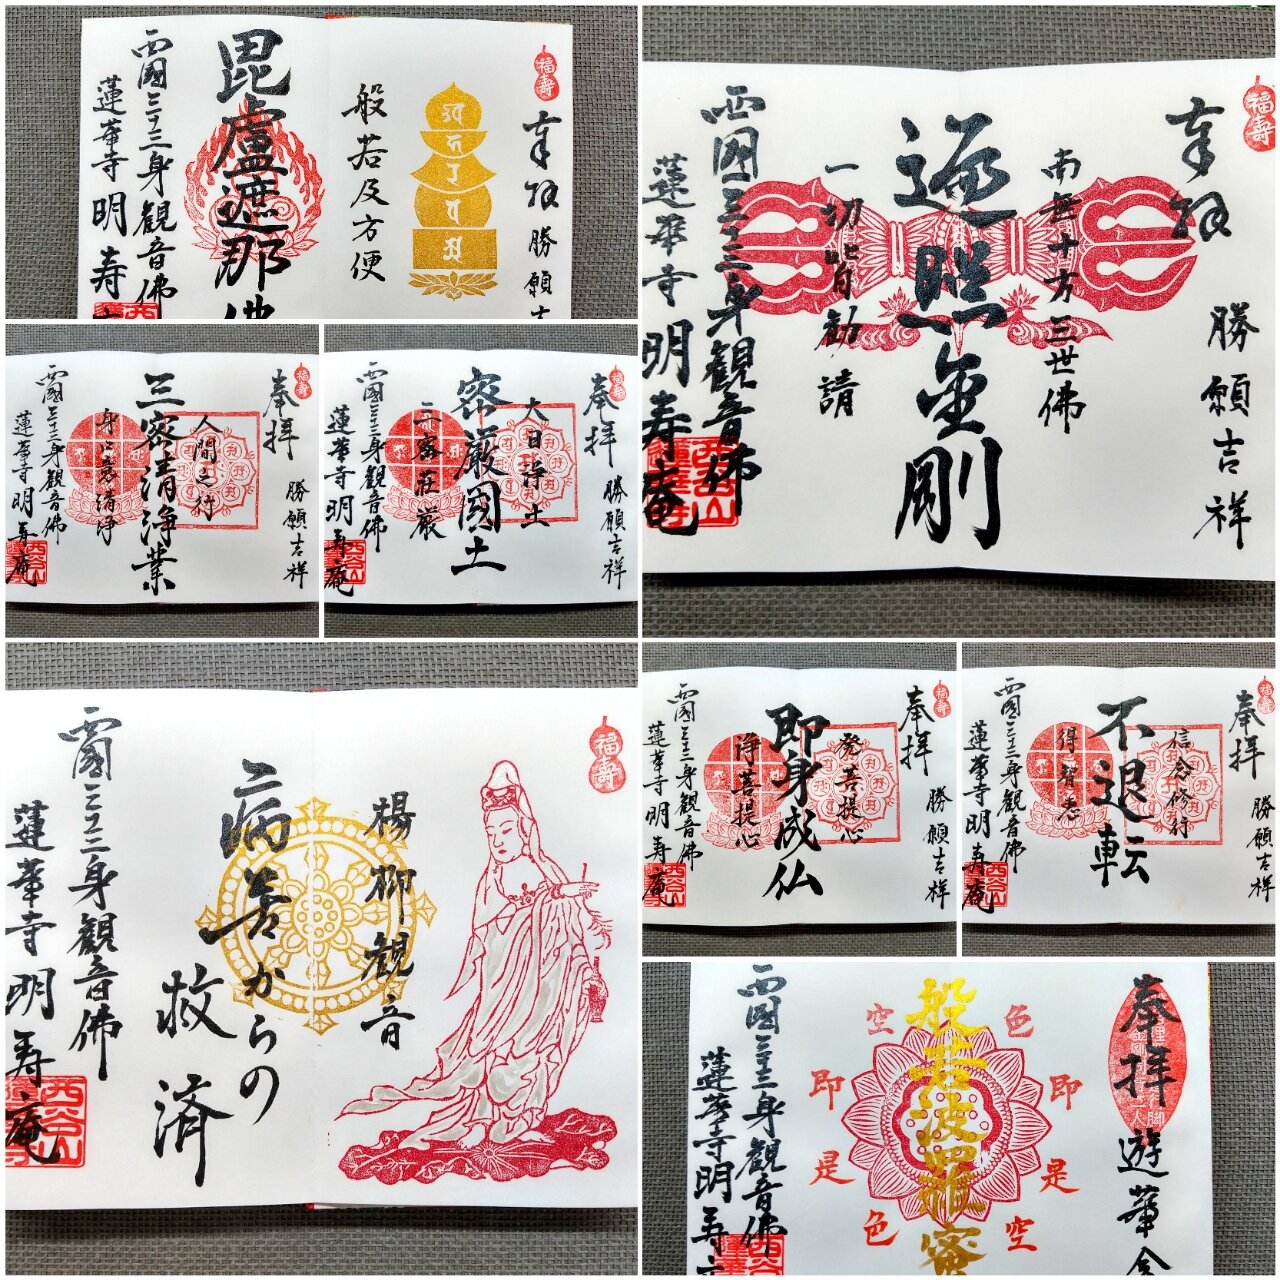 福寿
奉拝
勝願吉
般若及方便
毘盧遮那佛
西國三十三身観音佛
蓮華寺明寿
福寿
奉拝
勝願吉祥
南無十方三世佛
遍照金剛
一切皆勧請
西國三十三身観音佛
蓮華寺明寿庵
福寿
奉拝
勝願吉祥
人間之行
三密清浄業
身口意清浄
西國三十三身観音佛
蓮華寺明寿庵
福寿
奉拝
勝願吉祥
大日浄土
密厳国土
三密荘厳
西國三十三身観音佛
蓮華寺明寿庵
福寿
楊柳観音
病苦からの
救済
西國三十三身観音佛
蓮華寺明寿庵
西谷山
福寿
奉拝
勝願吉祥
発菩提心
即身成仏
浄菩提心
西國三十三身観音佛
蓮華寺明寿庵
福寿
奉拝
勝願吉祥
信念修行
不退転
得智恵
西國三十三身観音佛
蓮華寺明寿庵
奉拝
遊華会
色即是空
般若波羅蜜
空即是色
西國三十三身観音佛
蓮華寺明寿